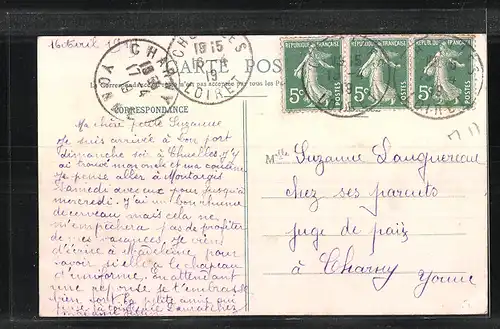 16 Avril 19
CHARNY
YONNE
CHUELLES
LOIRET
19 15
16 -4
19
CARTE POSTALE
La Correspondance au recto n'est pas acceptée par tous les Pays
CORRESPONDANCE
REPUBLIQUE FRANÇAISE REPUBLIQUE FRANÇAISE REPUBLIQUE FRANÇAISE
5c 5c 5c
POSTES POSTES POSTES
Ma chère petite Suzanne
Je suis arrivée à bon port
dimanche soir à Chuelles j'y
ai trouvé ma et ma cousine
Je pense aller à Montargis
samedi avec eux pour jusqu'à
mercredi. J'ai un bon rhume
de cerveau mais cela ne
m'empêchera pas de profiter
de mes vacances. Je viens
d'écrire à Madeleine pour
savoir si elle a le chapeau
d'uniforme, en attendant
une réponse je t'embrasse
bien sont ta petite amie qui
Mlle Suzanne Languereau
chez ses parents
juge de paix
à Charny
Yonne